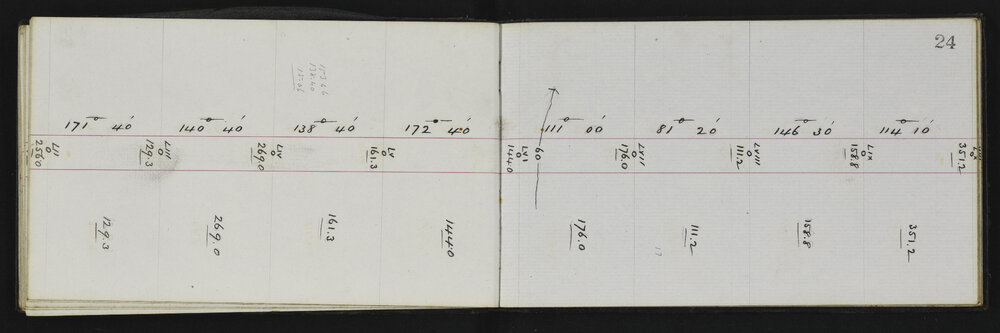 24
153.06
138.40
15.06
171° 40'
140° 40'
138° 40'
172° 40'
111° 00'
81° 20'
146° 30'
114° 10'
LII
256.0
LIII
129.3
LIV
269.0
LV
161.3
LVI
144.0
60
LVII
176.0
LVIII
111.2
LIX
158.8
LX
351.2
129.3
269.0
161.3
144.0
176.0
111.2
158.8
351.2
17